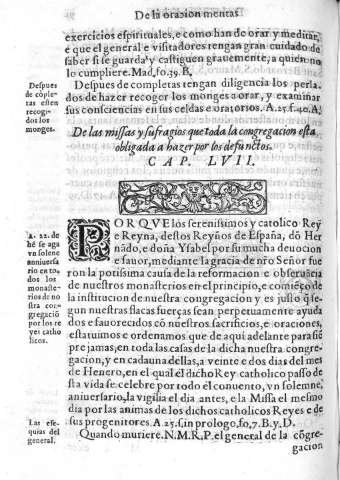 De la oracion mental
exercicios espirituales, e como han de orar y meditar,
é que el general e visitadores tengan gran cuidado de
saber si se guarda y castiguen grauemente, a quien no
lo cumpliere. Mad, fo. 39. B.
Despues de completas tengan diligencia los perla
dos de hazer recoger los monges a orar, y examinar
sus consciencias en sus celdas e oratorios. A. 25. f. 40. A.
Despues
de cõple-
tas esten
recogi-
dos los
monges.
De las missas y sufragios que toda la congregacion esta
obligada a hazer por los defunctos.
CAP. LVII.
PORQVE los serenissimos y catolico Rey
e Reyna, destos Reynos de España, dõ Her
nãdo, e doña Ysabel por su mucha deuocion
e fauor, mediante la gracia de nr̃o Señor fue
ron la potissima causa de la reformacion e obseruãcia
de nuestros monasterios en el principio, e comiẽço de
la institucion de nuestra congregacion y es justo q̃ se-
gun nuestras flacas fuerças sean perpetuamente ayuda
dos e fauorecidos cõ nuestros sacrificios, e oraciones,
estatuimos e ordenamos que de aqui adelante para siẽ
pre jamas, en toda las casas de la dicha nuestra congre-
gacion, y en cada una dellas, a veinte e dos dias del mes
de Henero, en el qual él dicho Rey catholico passo de
sta vida se celebre por todo él conuento, vn solemne,
aniuersario, la vigilia el dia antes, e la Missa el mesmo
dia por las animas de los dichos catholicos Reyes e de
sus progenitores. A. 25. in prologo, fo, 7. B. y D.
Quando muriere. N. M. R. P. el general de la cõgre-
gacion
A. 22. de
hé se aga
vn solene
anniuersa
rio en to-
dos los
monaste-
rios de no
stra con-
gregació
por los re
yes catho
licos.
Las ese-
quias del
general.